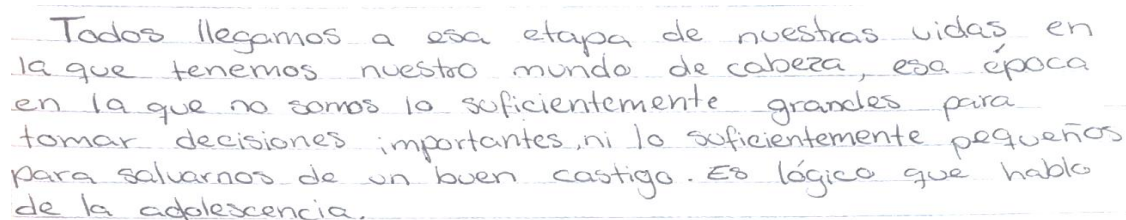 Todos llegamos a esa etapa de nuestras vidas en
la que tenemos nuestro mundo de cabeza, esa época
en la que no somos lo suficientemente grandes para
tomar decisiones importantes, ni lo suficientemente pequeños
para salvarnos de un buen castigo. Es lógico que hablo
de la adolescencia.